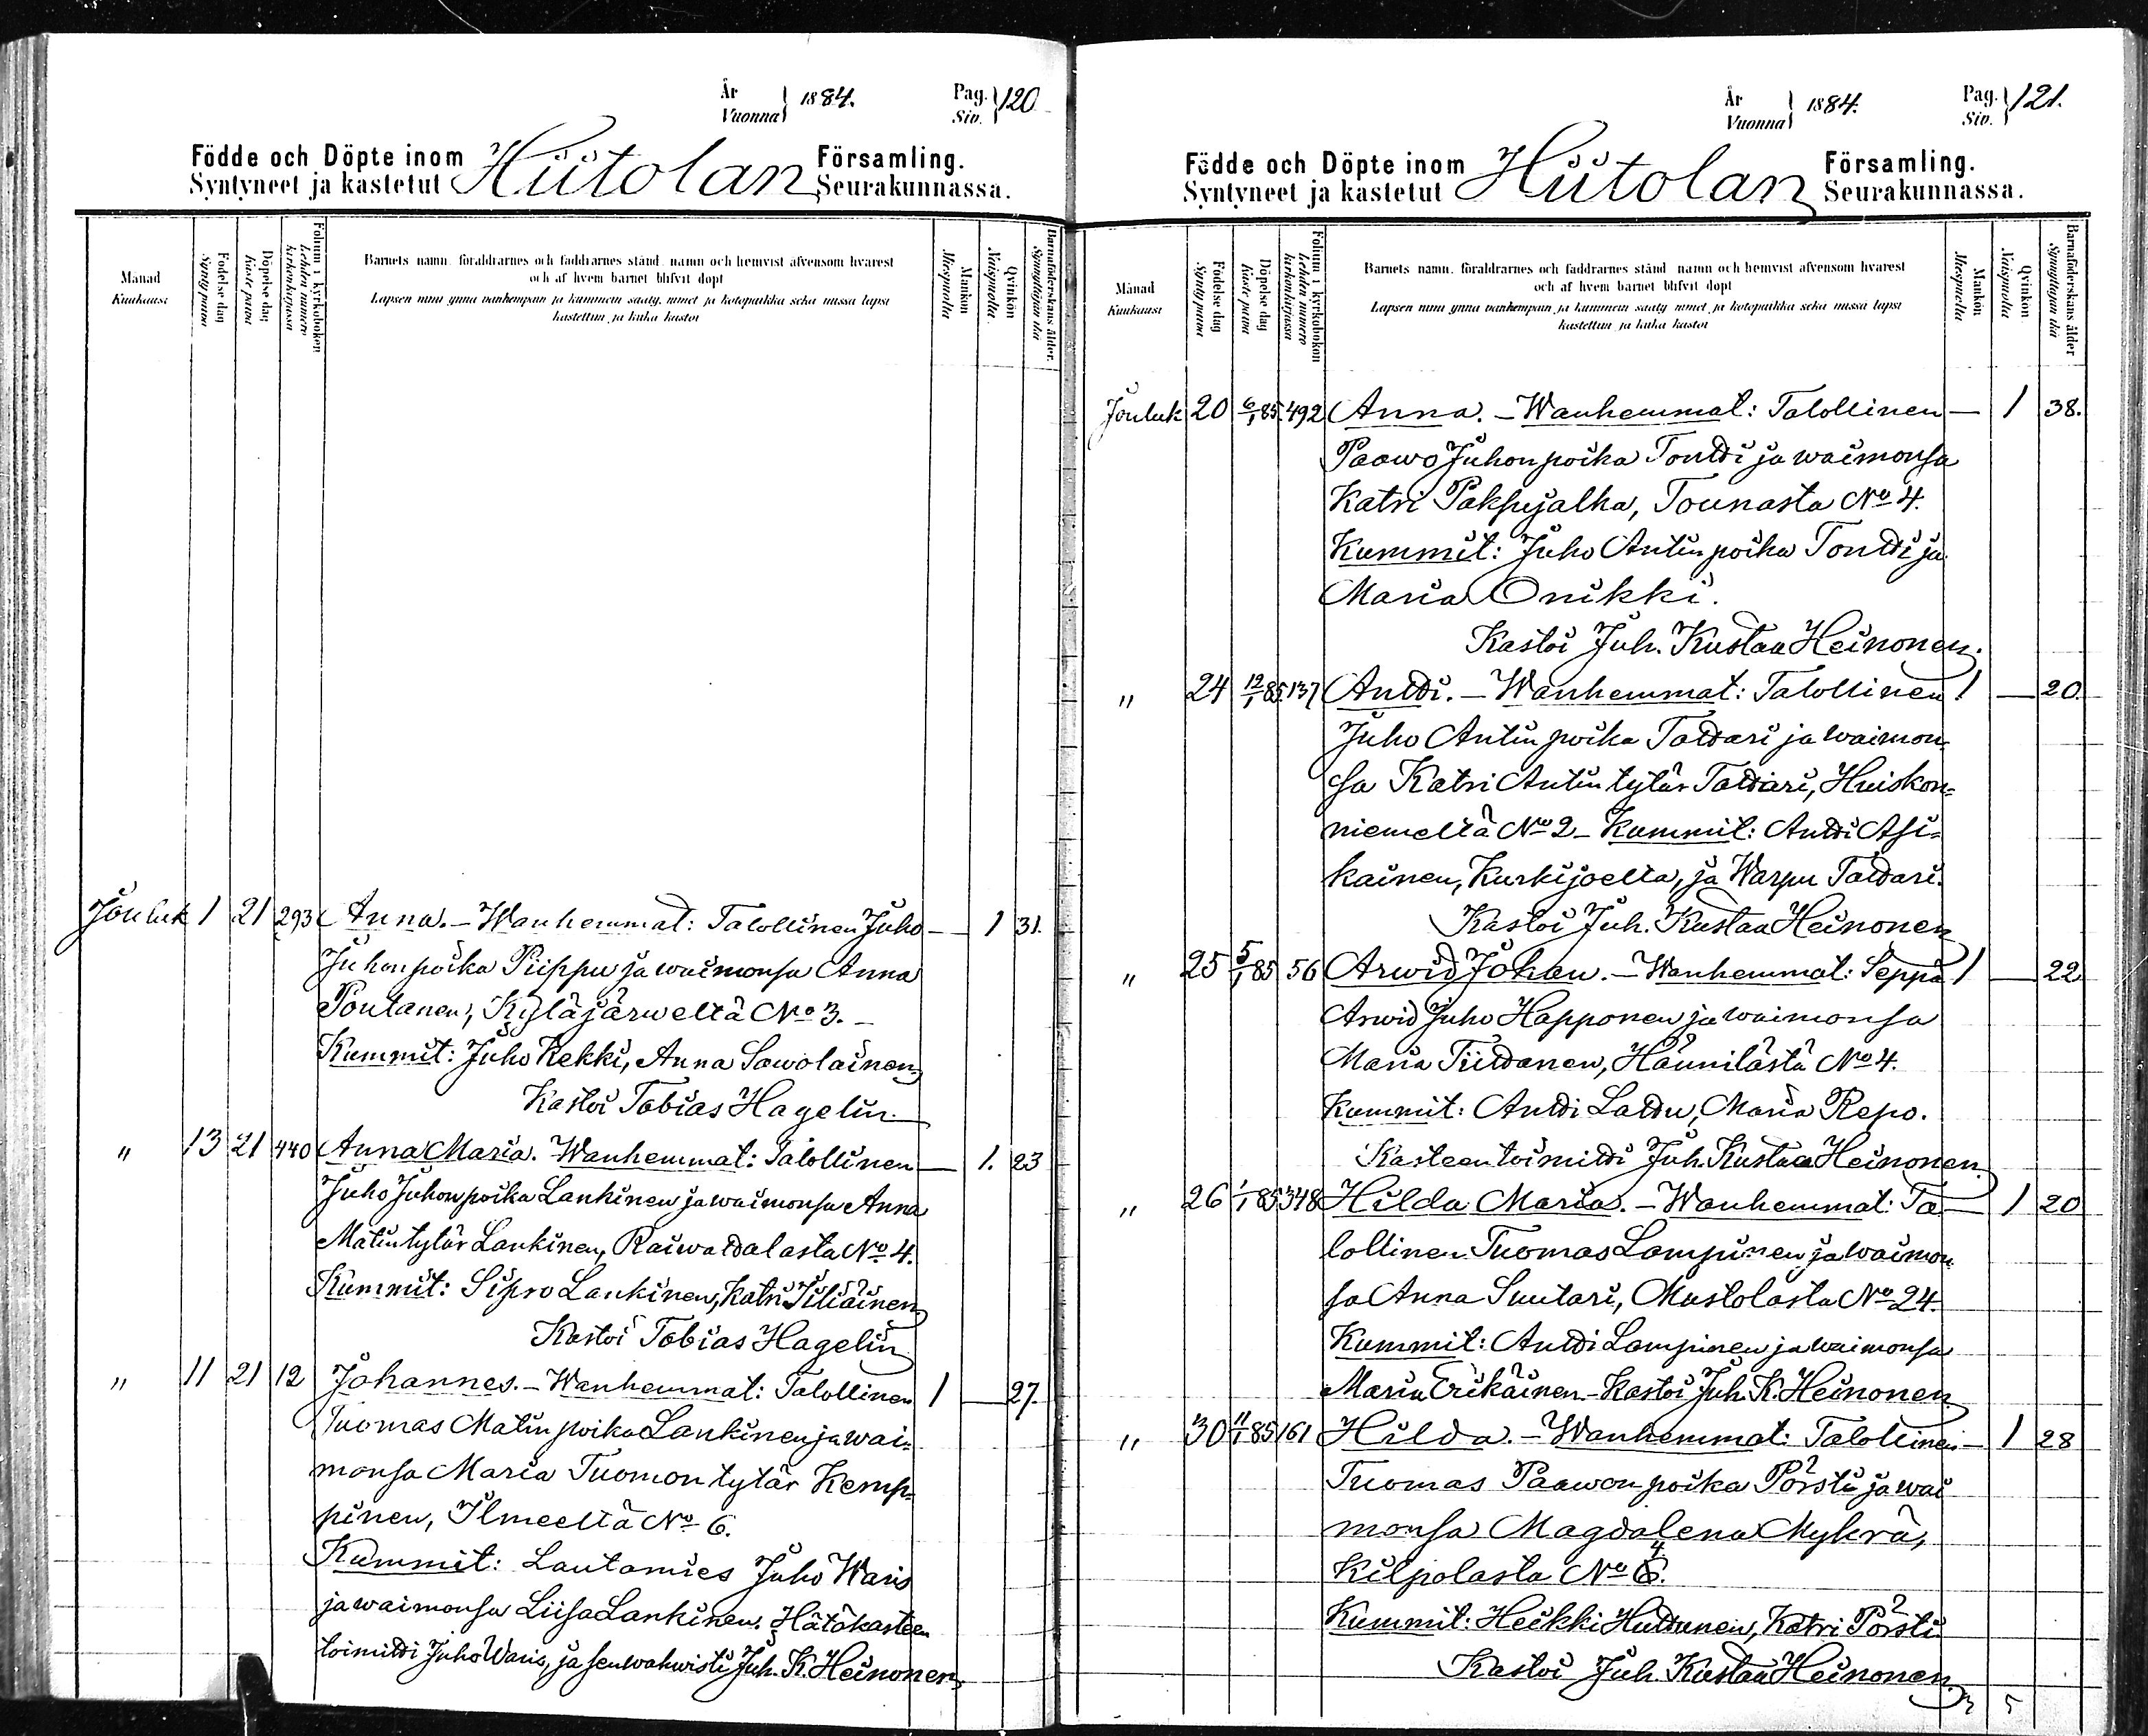 År
Vuonna } 1884.
Pag.
Siv. } 120
Födde och Döpte inom Hiitolan Församling.
Syntyneet ja kastetut Seurakunnassa.
Månad
Kuukausi
Födelse dag
Synty päivä
Döpelse dag
Kaste päivä
Folium i kyrkoboken
Lehden numero kirkonkirjassa
Barnets namn, föräldrarnes och faddrarnes stånd, namn och hemvist äfvensom hvarest
och af hvem barnet blifvit döpt
Lapsen nimi ynnä vanhempain ja kummein sääty, nimet ja kotopaikka sekä missä lapsi
kastettiin ja kuka kastoi
Mankön
Miespuolia
Qvinkön
Naispuolia
Barnaföderskans ålder.
Synnyttäjän ikä
Jouluk 1 21 293 Anna. – Wanhemmat: Talollinen Juho — 1 31.
Juhonpoika Piippu ja waimonsa Anna
Poutanen, Kyläjärweltä No 3. –
Kummit: Juho Kekki, Anna Sawolainen
Kastoi Tobias Hagelin
" 13 21 440 Anna Maria. Wanhemmat: Talollinen — 1. 23
Juho Juhonpoika Lankinen ja waimonsa Anna
Matintytär Lankinen, Raiwattalasta No 4.
Kummit: Sipro Lankinen, Katri Iiliäinen
Kastoi Tobias Hagelin
" 11 21 12 Johannes. – Wanhemmat: Talollinen 1 — 27.
Tuomas Matinpoika Lankinen ja wai-
monsa Maria Tuomontytär Kemp-
pinen, Ilmeeltä No 6.
Kummit: Lautamies Juho Waris
ja waimonsa Liisa Lankinen. Hätäkasteen
toimitti Juho Waris, ja sen wahwisti Juh. K. Heinonen
År
Vuonna } 1884.
Pag.
Siv. } 121.
Födde och Döpte inom Hiitolan Församling.
Syntyneet ja kastetut Seurakunnassa.
Månad
Kuukausi
Födelse dag
Synty päivä
Döpelse dag
Kaste päivä
Folium i kyrkoboken
Lehden numero kirkonkirjassa
Barnets namn, föräldrarnes och faddrarnes stånd, namn och hemvist äfvensom hvarest
och af hvem barnet blifvit döpt
Lapsen nimi ynnä vanhempain ja kummein sääty, nimet ja kotopaikka sekä missä lapsi
kastettiin ja kuka kastoi
Mankön
Miespuolia
Qvinkön
Naispuolia
Barnaföderskans ålder
Synnyttäjän ikä
Jouluk 20 6/1 85. 492 Anna. – Wanhemmat: Talollinen — 1 38.
Paawo Juhonpoika Tontti ja waimonsa
Katri Paksujalka, Tounasta No 4.
Kummit: Juho Antinpoika Tontti ja
Maria Onikki.
Kastoi Juh. Kustaa Heinonen.
" 24 12/1 85. 137 Antti. – Wanhemmat: Talollinen 1 — 20.
Juho Antinpoika Tattari ja waimon-
sa Katri Antintytär Tattari, Huiskon-
niemeltä No 2 – Kummit: Antti Asi-
kainen, Kurkijoelta, ja Warpu Tattari.
Kastoi Juh. Kustaa Heinonen
" 25 5/1 85 56 Arwid Johan. – Wanhemmat: Seppä 1 — 22
Arwid Juho Happonen ja waimonsa
Maria Tiittanen, Hännilästä No 4.
Kummit: Antti Lattu, Maria Repo.
Kasteen toimitti Juh. Kustaa Heinonen
" 26 1/1 85 348 Hilda Maria. – Wanhemmat: Ta- — 1 20
lollinen Tuomas Lampinen ja waimon
sa Anna Suutari, Mustolasta No 24.
Kummit: Antti Lampinen ja waimonsa
Maria Erikäinen – Kastoi Juh. K. Heinonen
" 30 11/1 85 161 Hilda. – Wanhemmat: Talollinen — 1 28
Tuomas Paawonpoika Pörsti ja wai
monsa Magdalena Mykrä,
Kilpolasta No 4.
Kummit: Heikki Huttunen, Katri Pörsti
Kastoi Juh. Kustaa Heinonen.
3 5